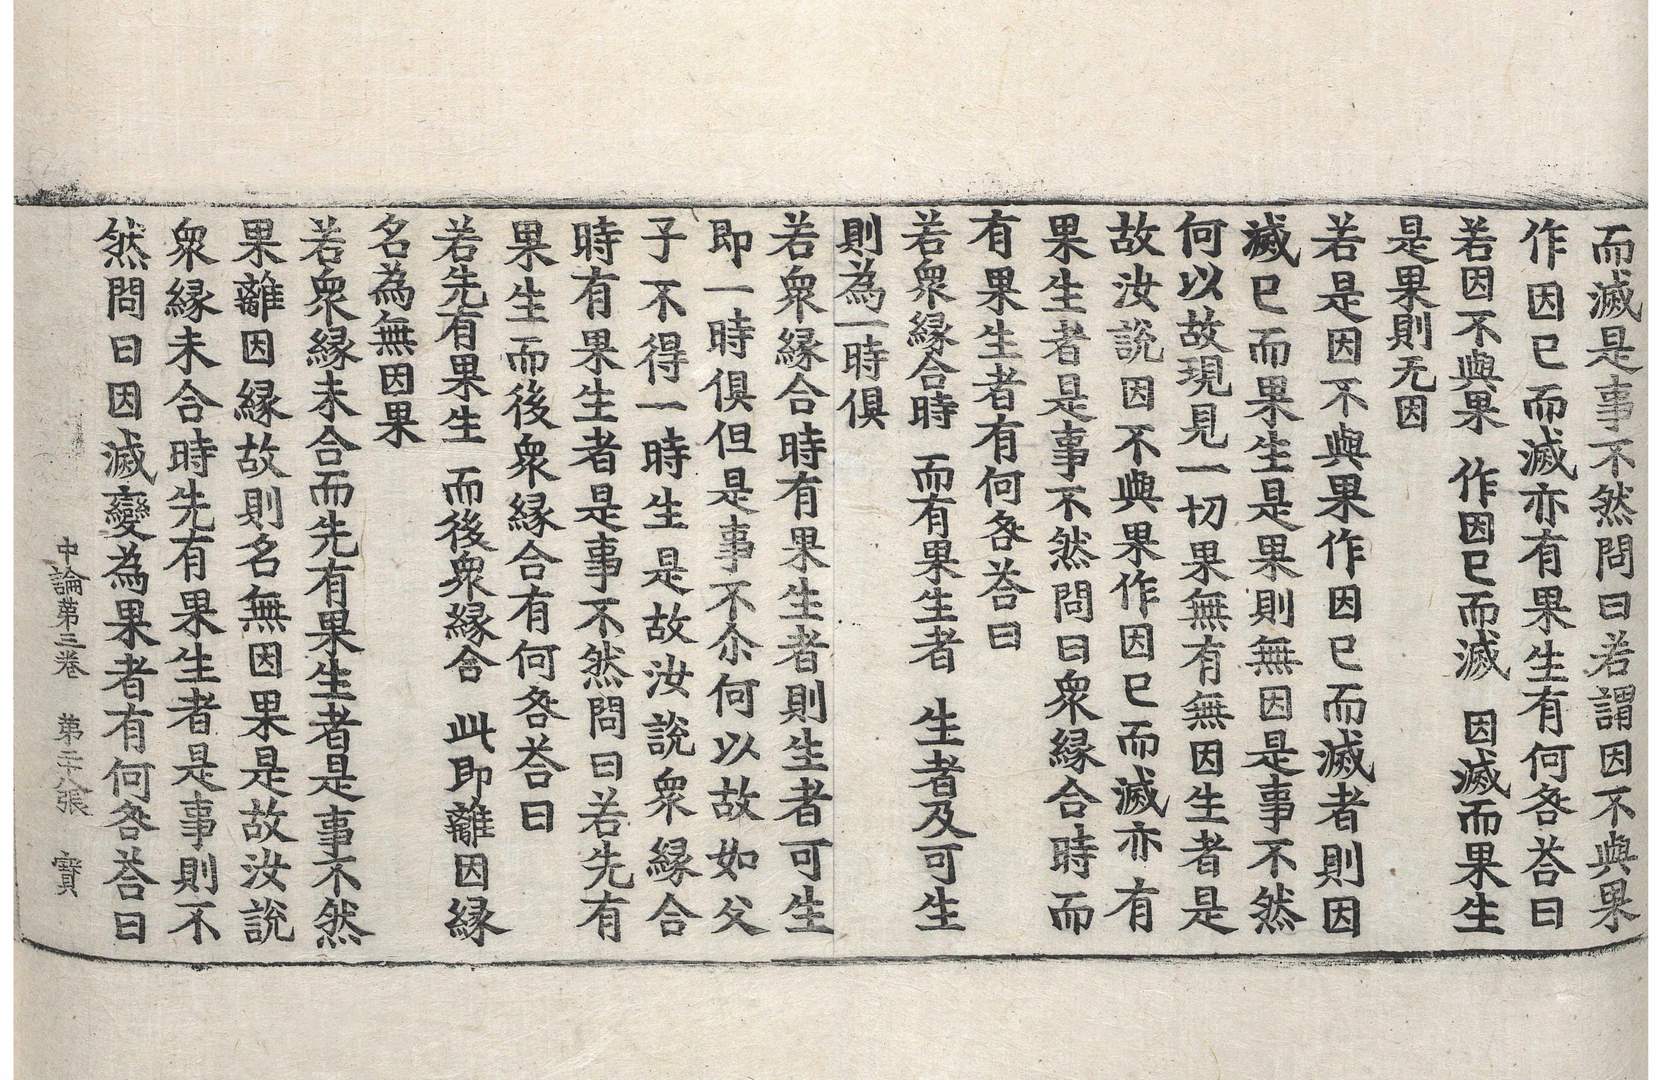 而滅是事不然問曰若謂因不與果
作因已而滅亦有果生有何咎荅曰
若因不與果 作因已而滅 因滅而果生
是果則无因
若是因不與果作因已而滅者則因
滅已而果生是果則無因是事不然
何以故現見一切果無有無因生者是
故汝說因不與果作因已而滅亦有
果生者是事不然問曰衆緣合時而
有果生者有何咎荅曰
若衆緣合時 而有果生者 生者及可生
則為一時俱
若衆緣合時有果生者則生者可生
即一時俱但是事不尒何以故如父
子不得一時生是故汝說衆緣合
時有果生者是事不然問曰若先有
果生而後衆緣合有何咎荅曰
若先有果生 而後衆緣合 此即離因緣
名為無因果
若衆緣未合而先有果生者是事不然
果離因緣故則名無因果是故汝說
衆緣未合時先有果生者是事則不
然問曰因滅變為果者有何咎荅曰
中論第三卷 第二十八張 寶